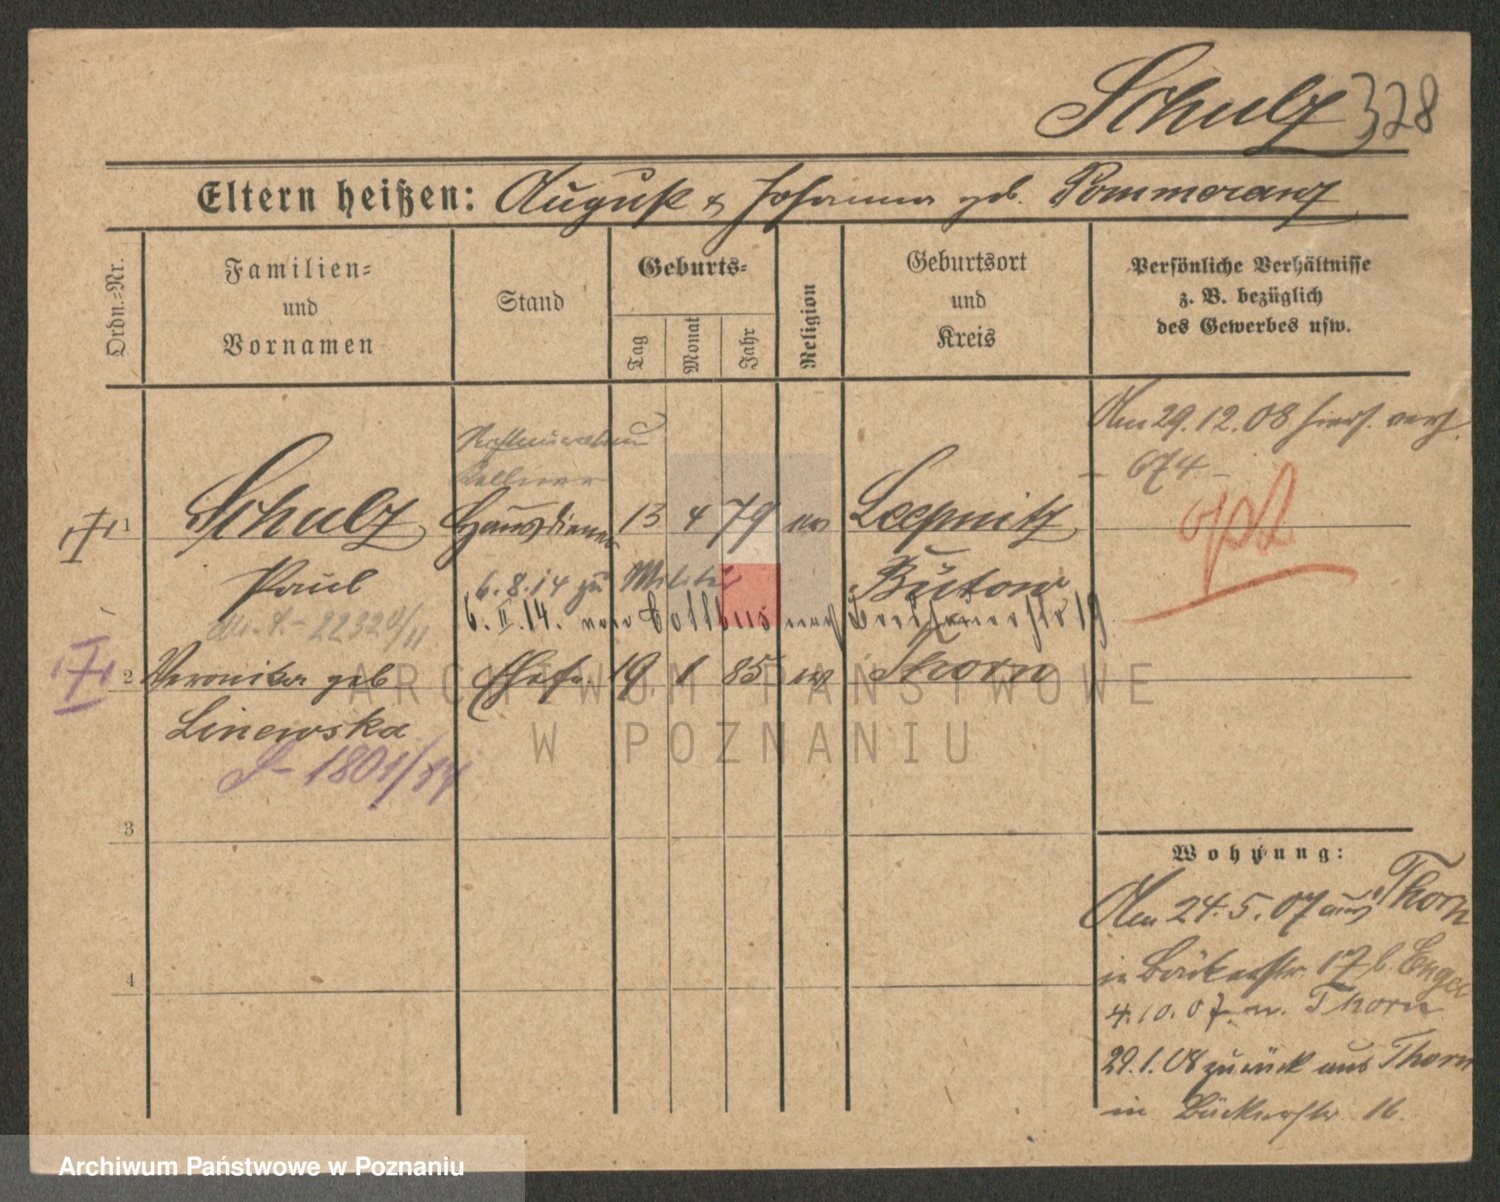 Schulz 328
Eltern heißen: August & Johanna geb. Pommeranz
Ordn.=Nr.
Familien=
und
Vornamen
Stand
Geburts=
Tag
Monat
Jahr
Religion
Geburtsort
und
Kreis
Persönliche Verhältnisse
z. B. bezüglich
des Gewerbes usw.
Am 29.12.08 hies. verh.
- 674 -
Kellner
1 Schulz Hausdiener 13 4 79 Leepnitz
Paul 6.8.14 zu Militär Bütow
2232
6.II.14. von Cottbus nach 19
2 Veronika geb Ehefr. 19 1 85 Thorn
Linewska
1801/14
3
4
Wohnung:
Am 24.5.07 aus Thorn
in Bäckerstr. 17 b. Engel
4.10.07 n. Thorn
29.1.08 zurück aus Thorn
in Bäckerstr 16.
ARCHIWUM PAŃSTWOWE
W POZNANIU
Archiwum Państwowe w Poznaniu